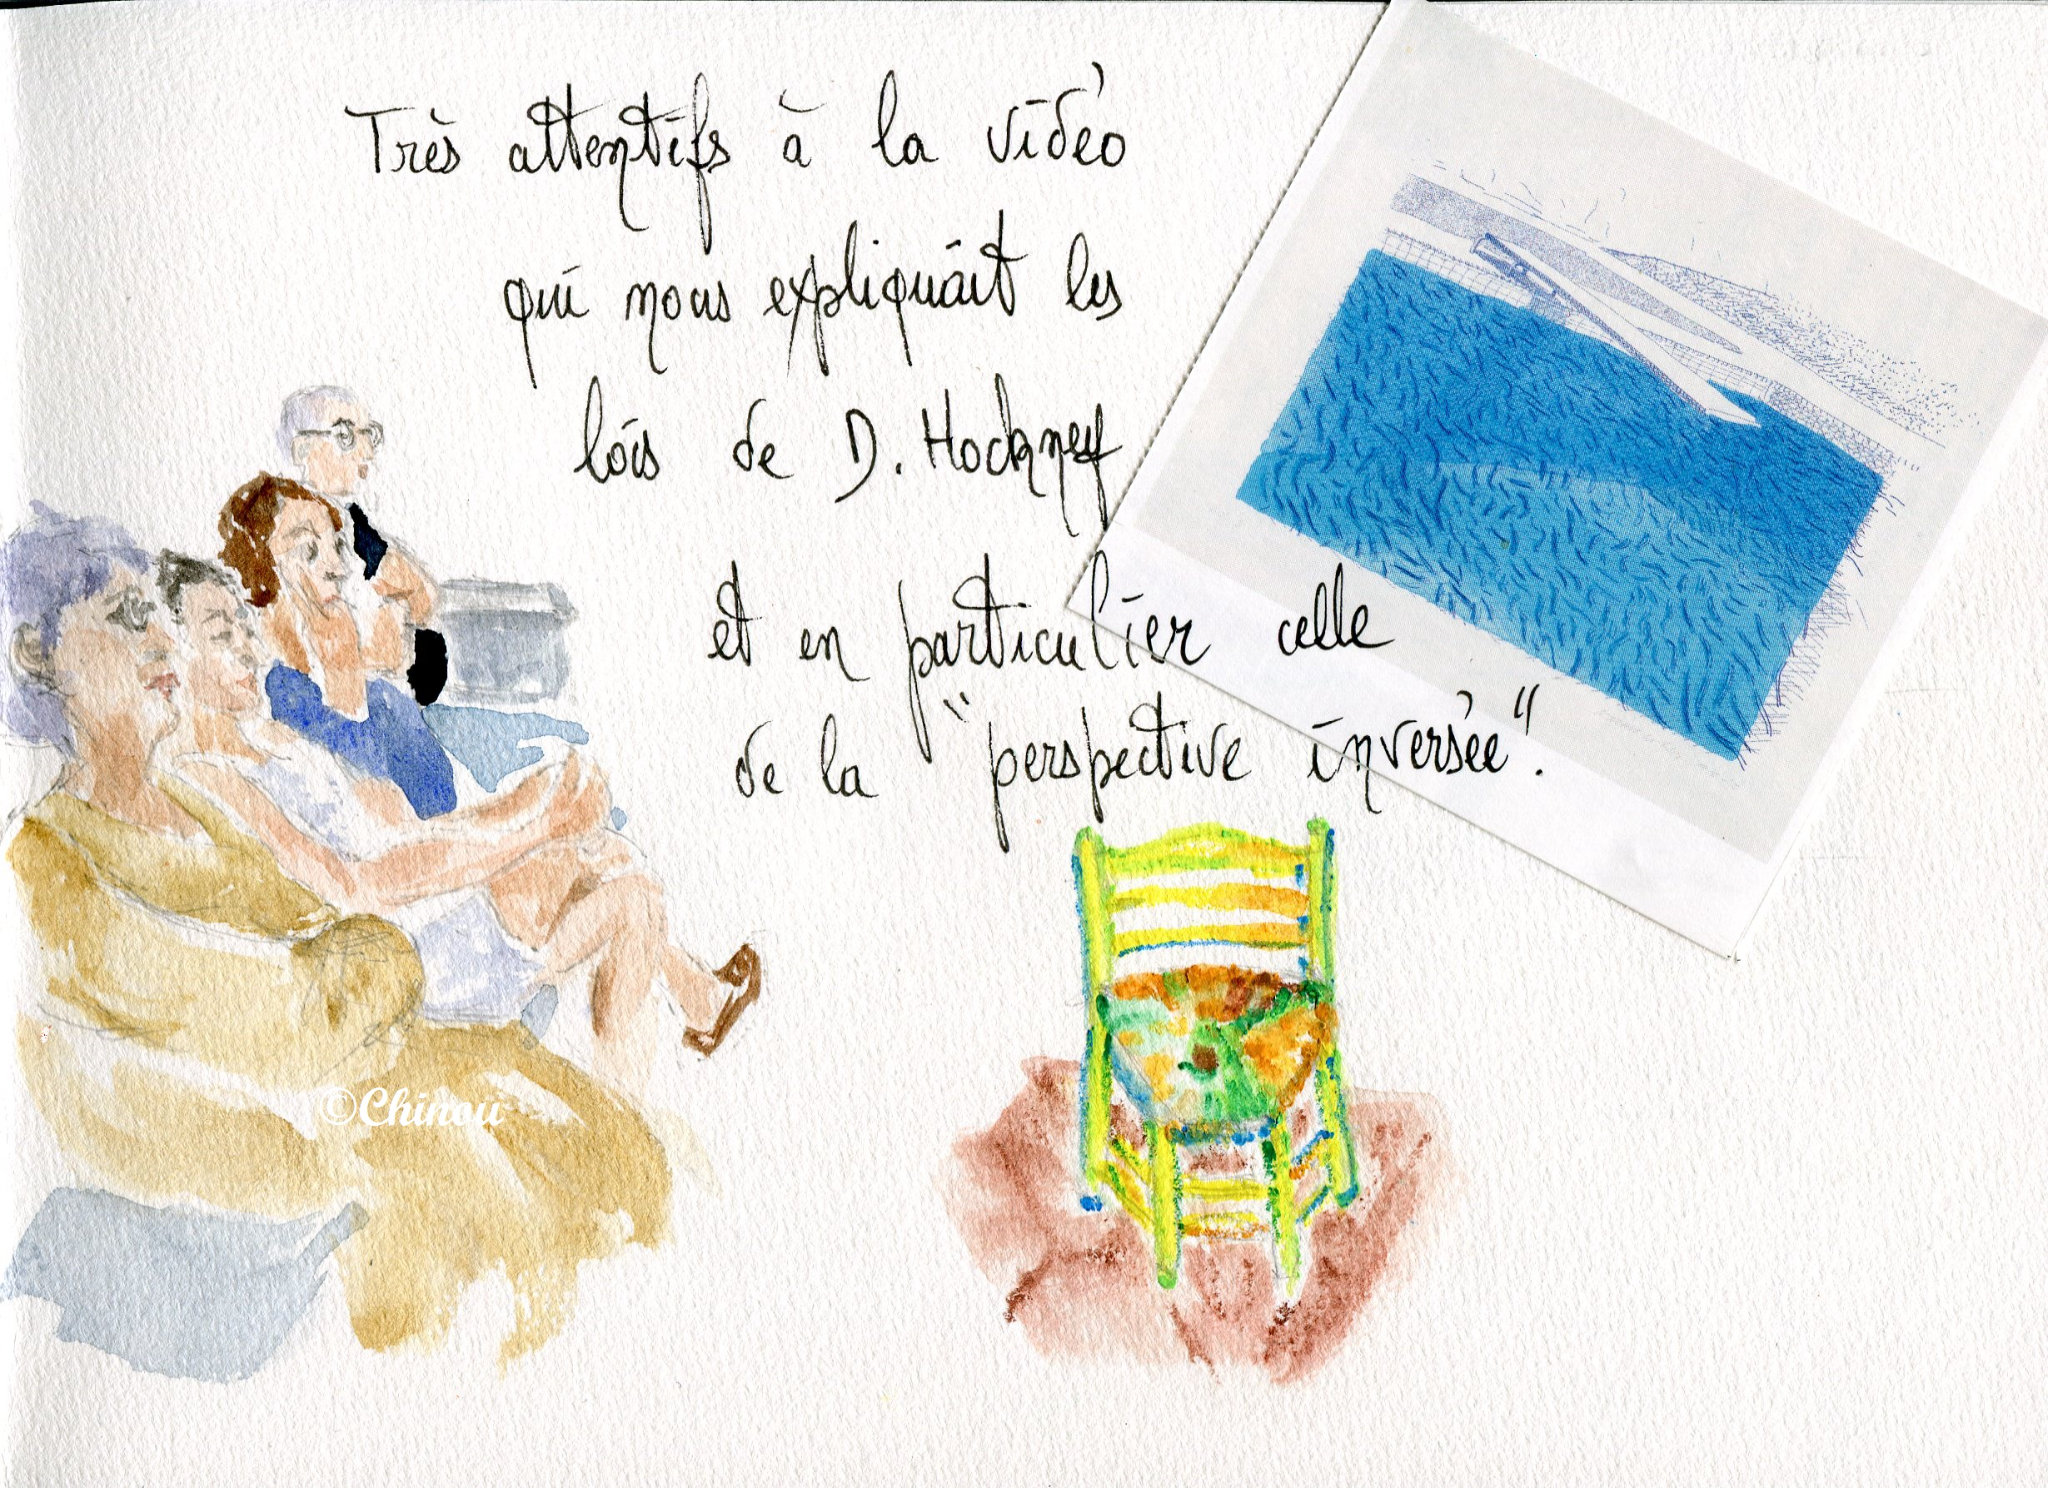 Très attentifs à la vidéo
qui nous expliquait les
lois de D. Hockney
et en particulier celle
de la "perspective inversée".
©Chinou